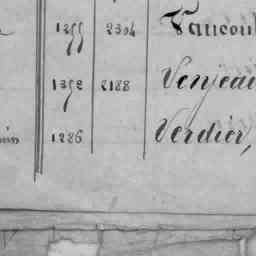 1255 2304 Vaucoul
1352 2188 Venjeau
1286 Verdier,